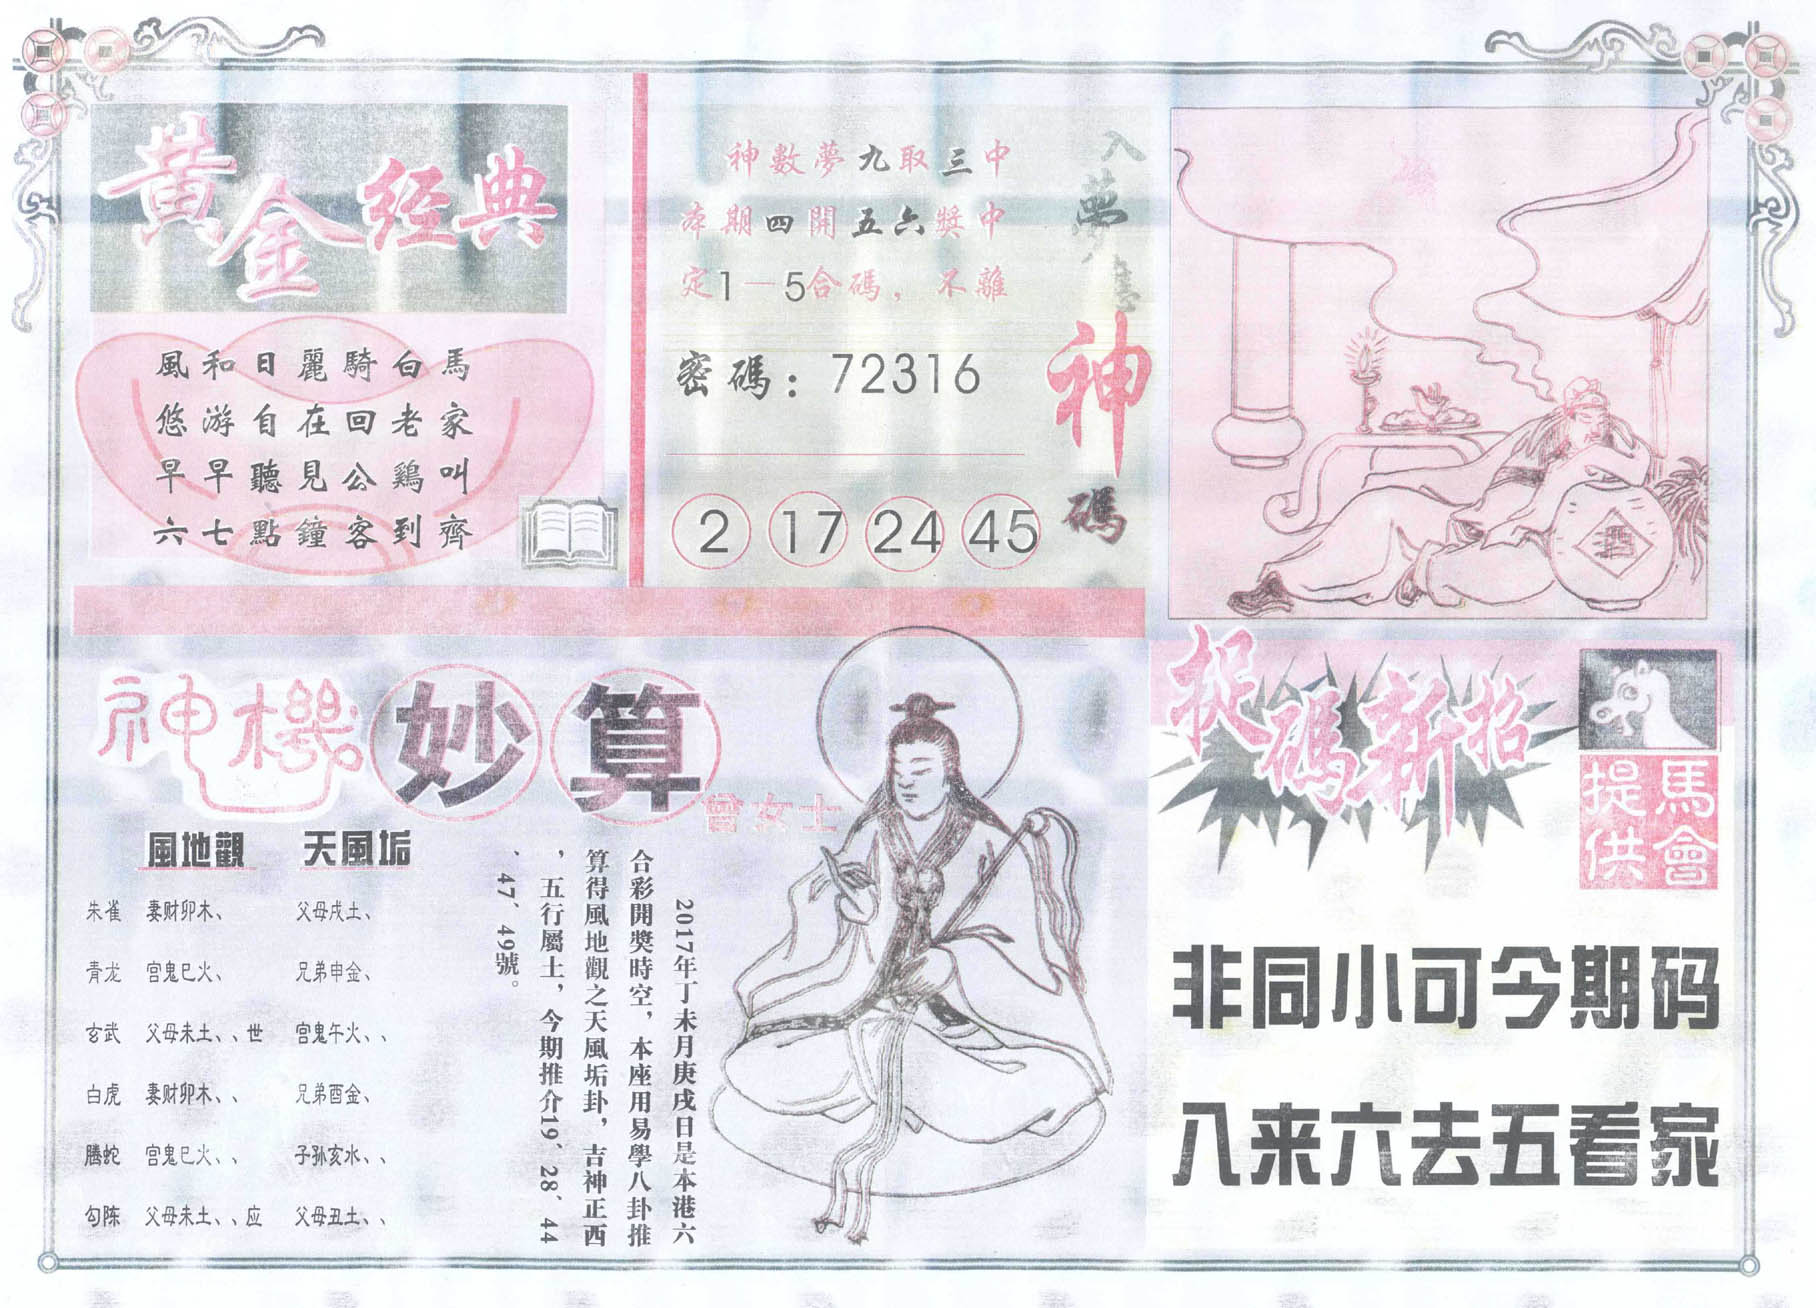 黃金经典
風和日麗騎白馬
悠游自在回老家
早早聽見公鷄叫
六七點鐘客到齊
神數夢九取三中
本期四開五六獎中
定1－5合碼，不離
密碼：72316
2 17 24 45
入夢
神
碼
神機妙算
曾女士
風地觀 天風垢
朱雀 妻财卯木、 父母戌土、
青龙 官鬼巳火、 兄弟申金、
玄武 父母未土、、世 官鬼午火、、
白虎 妻财卯木、、 兄弟酉金、
腾蛇 官鬼巳火、、 子孙亥水、、
勾陈 父母未土、、应 父母丑土、、
2017年丁未月庚戌日是本港六
合彩開獎時空，本座用易學八卦推
算得風地觀之天風垢卦，吉神正西
，五行屬土，今期推介19、28、44
、47、49號。
捉碼新招
馬會
提供
非同小可今期码
八来六去五看家